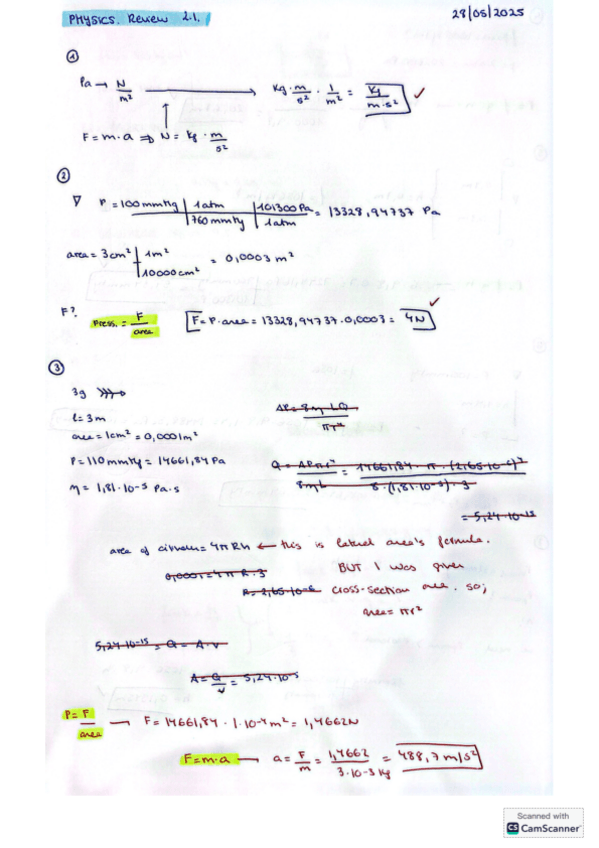 PHYSICS. Review 2.1.
28/05/2025
①
Pa → N/m² → Kg · m/s² · 1/m² = Kg/m·s² ✓
F = m·a ⇒ N = Kg · m/s²
②
P = 100 mmHg | 1 atm / 760 mmHg | 101300 Pa / 1 atm = 13328,94737 Pa
area = 3 cm² | 1 m² / 10000 cm² = 0,0003 m²
F? Press. = F/area F = P · area = 13328,94737 · 0,0003 = 4N ✓
③
3g
l = 3m
area = 1cm² = 0,0001m²
P = 110 mmHg = 14661,84 Pa
η = 1,81·10⁻⁵ Pa·s
ΔP = 8η LQ / πr⁴
Q = ΔPπr⁴ / 8ηL = 14661,84 · π · (2,65·10⁻⁶)⁴ / 8·(1,81·10⁻⁵)·3
= 5,24·10⁻¹⁵
area of = 4πRh ← this is lateral area's formula.
0,0001 = 4πR·3
BUT I was given
R = 2,65·10⁻⁶
cross-section area. so;
area = πr²
5,24·10⁻¹⁵ = Q = A·v
A = Q/v = 5,24·10⁻⁵
P = F/area → F = 14661,84 · 1·10⁻⁴ m² = 1,4662N
F = m·a → a = F/m = 1,4662 / 3·10⁻³ Kg = 488,7 m/s²
Scanned with
CS CamScanner